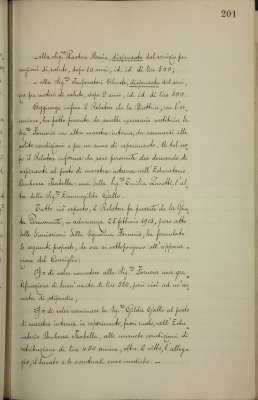 201
— alla Sig.na Pastore Maria, dispensata dal servizio per
ragioni di salute, dopo 10 anni, id. id. di lire 500;
— alla Sig.na Imperatori Celeste, dispensata dal servi-
zio per motivi di salute, dopo 2 anni, id. id. di lire 600.
Aggiunge infine il Relatore che la Direttrice, con l'oc-
casione, ha fatto presente che sarebbe necessario sostituire la
Sig.na Fornera con altra maestra interna, da assumersi alle
solite condizioni e per un anno di esperimento. A tal uo-
po il Relatore informa che sono pervenute due domande di
aspiranti al posto di maestra interna nell'Educatorio
Duchessa Isabella: una della Sig.na Emilia Linotti, l'al-
tra della Sig.na Ermenegilda Giello.
Tutto ciò esposto, il Relatore fa presente che la Giun-
ta Permanente, in adunanza 28 febbraio 1913, preso atto
delle dimissioni della Signorina Fornera, ha formulato
le seguenti proposte, che ora si sottopongono all'approva-
zione del Consiglio:
1°) di voler concedere alla Sig.na Fornera una gra-
tificazione di buona uscita di lire 550, pari cioè ad un'an-
nata di stipendio;
2°) di voler nominare la Sig.na Gilda Giello al posto
di maestra interna in esperimento, pari ruolo, nell'Edu-
catorio Duchessa Isabella, alle consuete condizioni di
retribuzione di lire 450 annue, oltre il vitto, l'allog-
gio, il bucato e le eventuali cure mediche. —